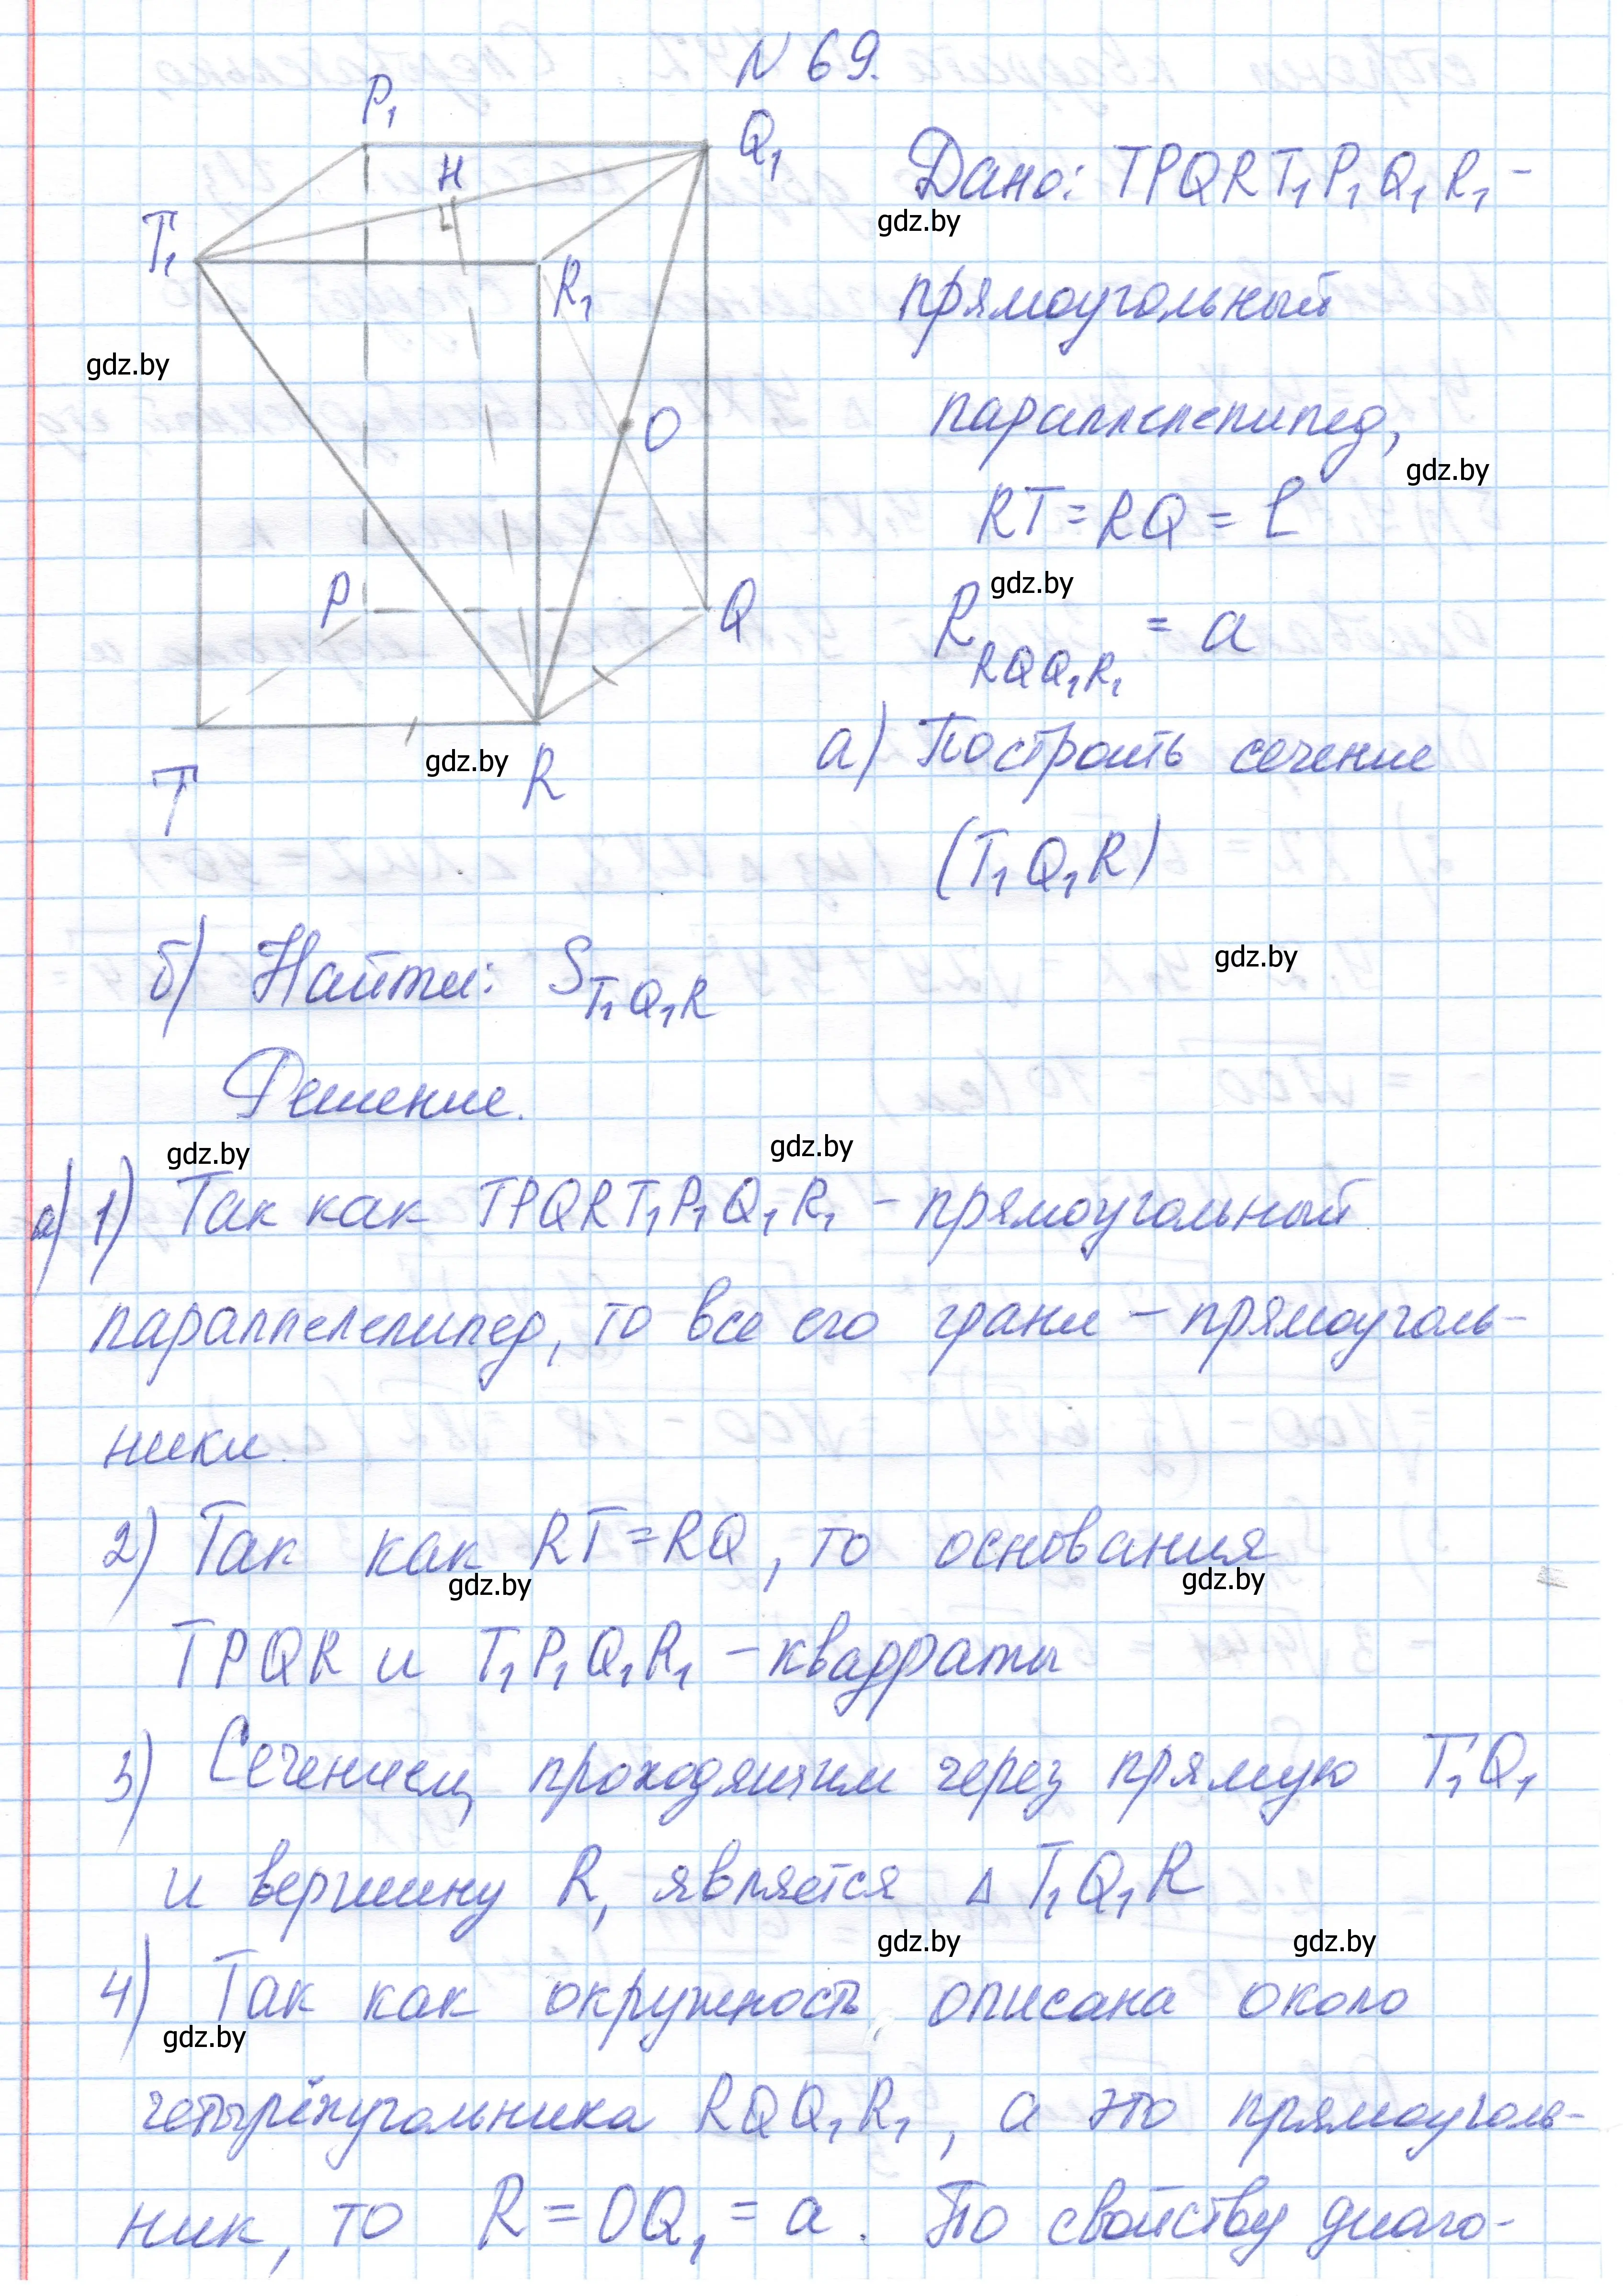 N 69.
P₁
Q₁
H
T₁
R₁
O
P
Q
T
R
Дано: TPQRT₁P₁Q₁R₁ –
gdz.by
прямоугольный
gdz.by
параллелепипед,
gdz.by
RT = RQ = l
gdz.by
R RQQ₁R₁ = a
а) Построить сечение
gdz.by
(T₁Q₁R)
gdz.by
б) Найти: S T₁Q₁R
Решение.
gdz.by gdz.by
а) 1) Так как TPQRT₁P₁Q₁R₁ – прямоугольный
параллелепипед, то все его грани – прямоуголь-
ники.
2) Так как RT = RQ, то основания
gdz.by gdz.by
TPQR и T₁P₁Q₁R₁ – квадраты
3) Сечением, проходящим через прямую T₁Q₁
и вершину R, является Δ T₁Q₁R
gdz.by gdz.by
4) Так как окружность, описана около
gdz.by
четырёхугольника RQQ₁R₁, а это прямоуголь-
ник, то R = OQ₁ = a. По свойству диаго-